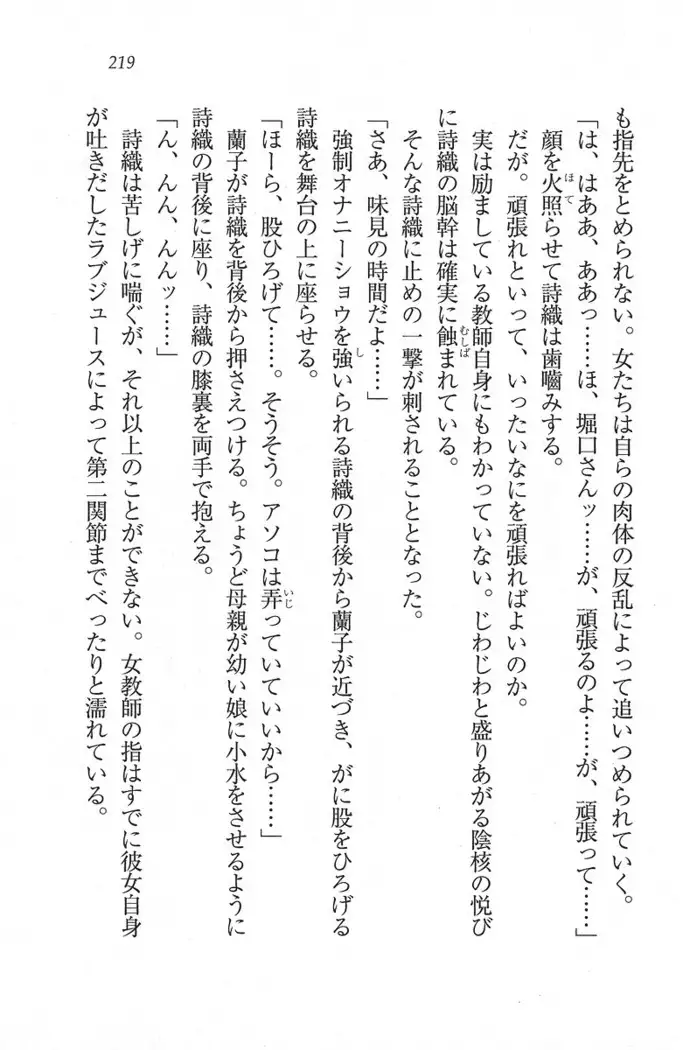 219
も指先をとめられない。女たちは自らの肉体の反乱によって追いつめられていく。
「は、はああ、ああっ……ほ、堀口さんッ……が、頑張るのよ……が、頑張って……」
顔を火照らせて詩織は歯嚙みする。
だが。頑張れといって、いったいなにを頑張ればよいのか。
実は励ましている教師自身にもわかっていない。じわじわと盛りあがる陰核の悦び
に詩織の脳幹は確実に蝕まれている。
そんな詩織に止めの一撃が刺されることとなった。
「さあ、味見の時間だよ……」
強制オナニーショウを強いられる詩織の背後から蘭子が近づき、がに股をひろげる
詩織を舞台の上に座らせる。
「ほーら、股ひろげて……。そうそう。アソコは弄っていていいから……」
蘭子が詩織を背後から押さえつける。ちょうど母親が幼い娘に小水をさせるように
詩織の背後に座り、詩織の膝裏を両手で抱える。
「ん、んん、んんッ……」
詩織は苦しげに喘ぐが、それ以上のことができない。女教師の指はすでに彼女自身
が吐きだしたラブジュースによって第二関節までべったりと濡れている。